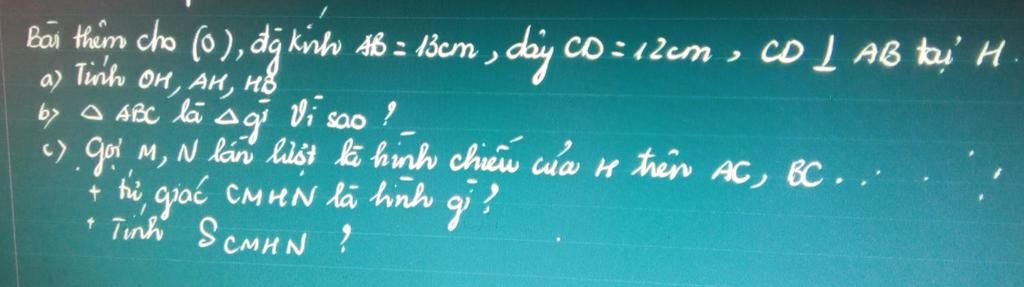 Bài thêm cho (O), đg kính AB = 13cm, dây CD = 12cm, CD ⊥ AB tại H.
a) Tính OH, AH, HB
b) △ ABC là △ gì Vì sao?
c) Gọi M, N lần lượt là hình chiếu của H trên AC, BC...
+ tứ giác CMHN là hình gì?
+ Tính S CMHN ?